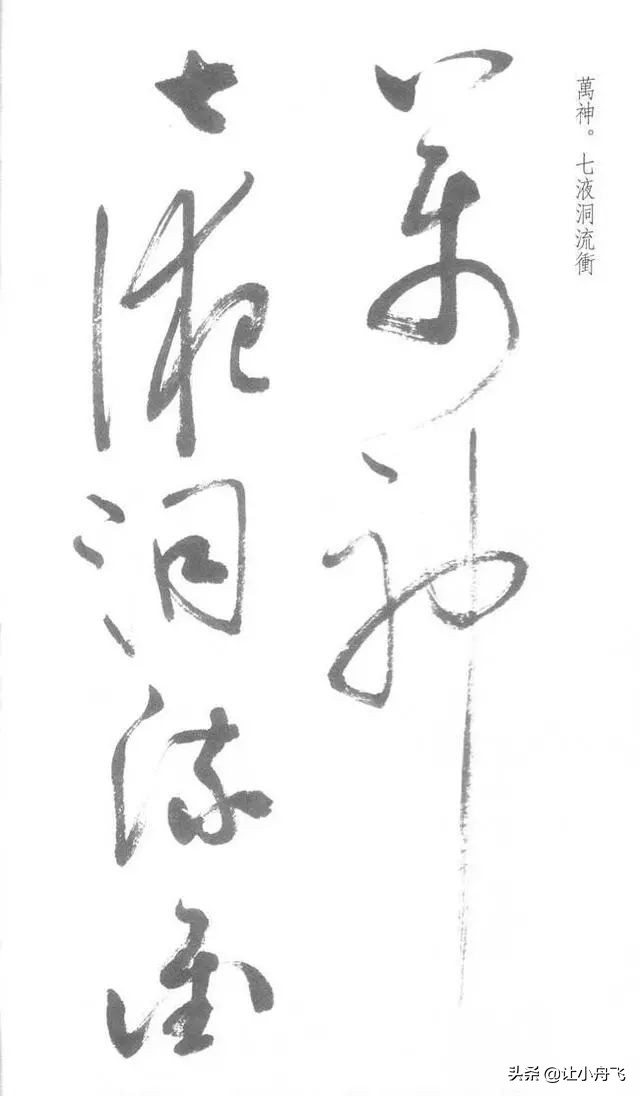 萬神。七液洞流衝
萬神
七液洞流衝
头条 @让小舟飞